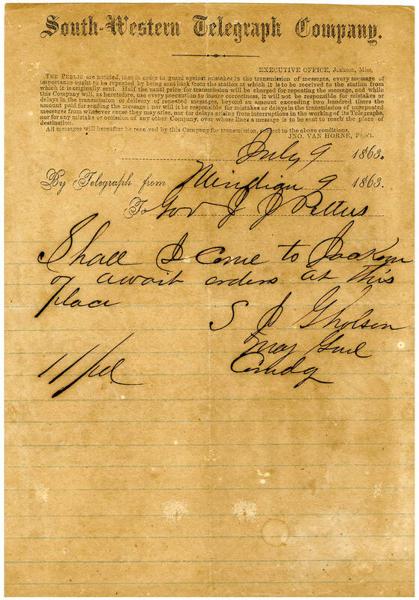 South-Western Telegraph Company.
EXECUTIVE OFFICE, Jackson, Miss.
THE PUBLIC are notified, that in order to guard against mistakes in the transmission of messages, every message of
importance ought to be repeated by being sent back from the station at which it is to be received to the station from
which it is originally sent. Half the usual price for transmission will be charged for repeating the message, and while
this Company will, as heretofore, use every precaution to insure correctness, it will not be responsible for mistakes or
delays in the transmission or delivery of repeated messages, beyond an amount exceeding two hundred times the
amount paid for sending the message; nor will it be responsible for mistakes or delays in the transmission of unrepeated
messages from whatever cause they may arise, nor for delays arising from interruptions in the working of its Telegraphs,
nor for any mistake or omission of any other Company, over whose lines a message is to be sent to reach the place of
destination.
All messages will hereafter be received by this Company for transmission, subject to the above conditions.
JNO. VAN HORNE, Pres't.
July 9 1863.
By Telegraph from Meridian 9 1863.
To Gov J J Pettus
Shall I come to Jackson
or await orders at this
place
S J Gholson
Maj Genl
Comdg
11/